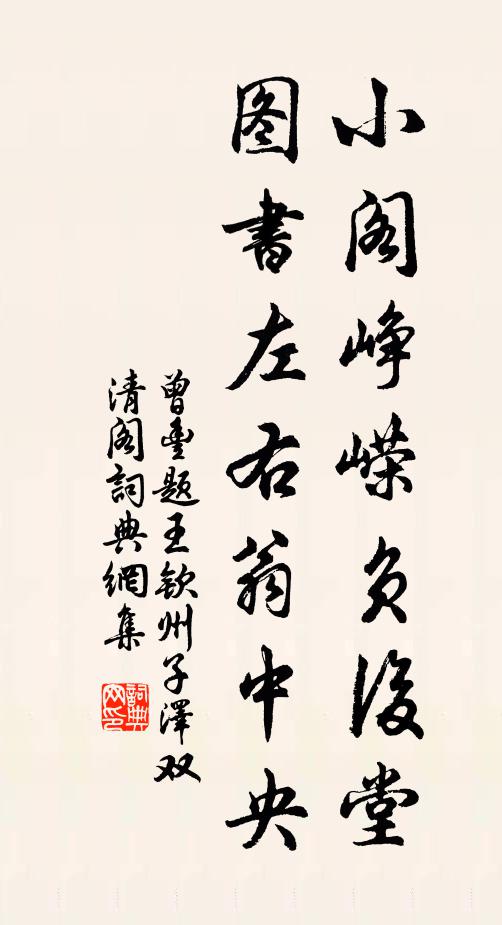 小阁峥嵘负后堂
图書左右翁中央
曾豊题王钦州子澤双
清阁詞典網集
詞典网印